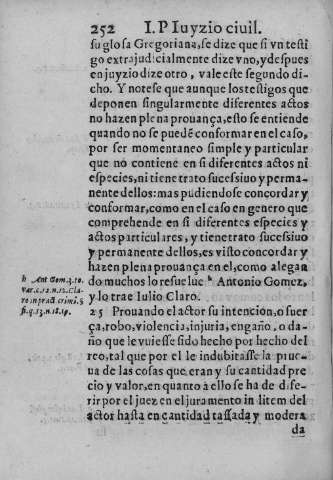 252 I. P Iuyzio ciuil.
su glosa Gregoriana, se dize que si vn testi
go extrajudicialmente dize vno, y despues
en juyzio dize otro, vale este segundo di-
cho. Y notese que aunque los testigos que
deponen singularmente diferentes actos
no hazen plena prouança, esto se entiende
quando no se puedẽ conformar en el caso,
por ser momentaneo simple y particular
que no contiene en si diferentes actos ni
especies, ni tiene trato sucessiuo y perma-
nente dellos: mas pudiendose concordar y
conformar, como en el caso en genero que
comprehende en si diferentes especies y
actos particulares, y tiene trato sucessiuo
y permanente dellos, es visto concordar y
hazen plena prouança en el, como alegan
do muchos lo resuelue h Antonio Gomez,
y lo trae Iulio Claro.
h Ant Gom. q. to.
var. c. 12. n. 12. Cla-
ro in pract crimi. §
fi. q. 53. n. 18. 19.
25 Prouando el actor su intencion, o fuer
ça, robo, violencia, injuria, engaño, o da-
ño que le vuiesse sido hecho por hecho del
reo, tal que por el le indubitasse la prue-
ua de las cosas que eran y su cantidad pre
cio y valor, en quanto à ello se ha de dife-
rir por el juez en el juramento in litem del
actor hasta en cantidad tassada y modera
da